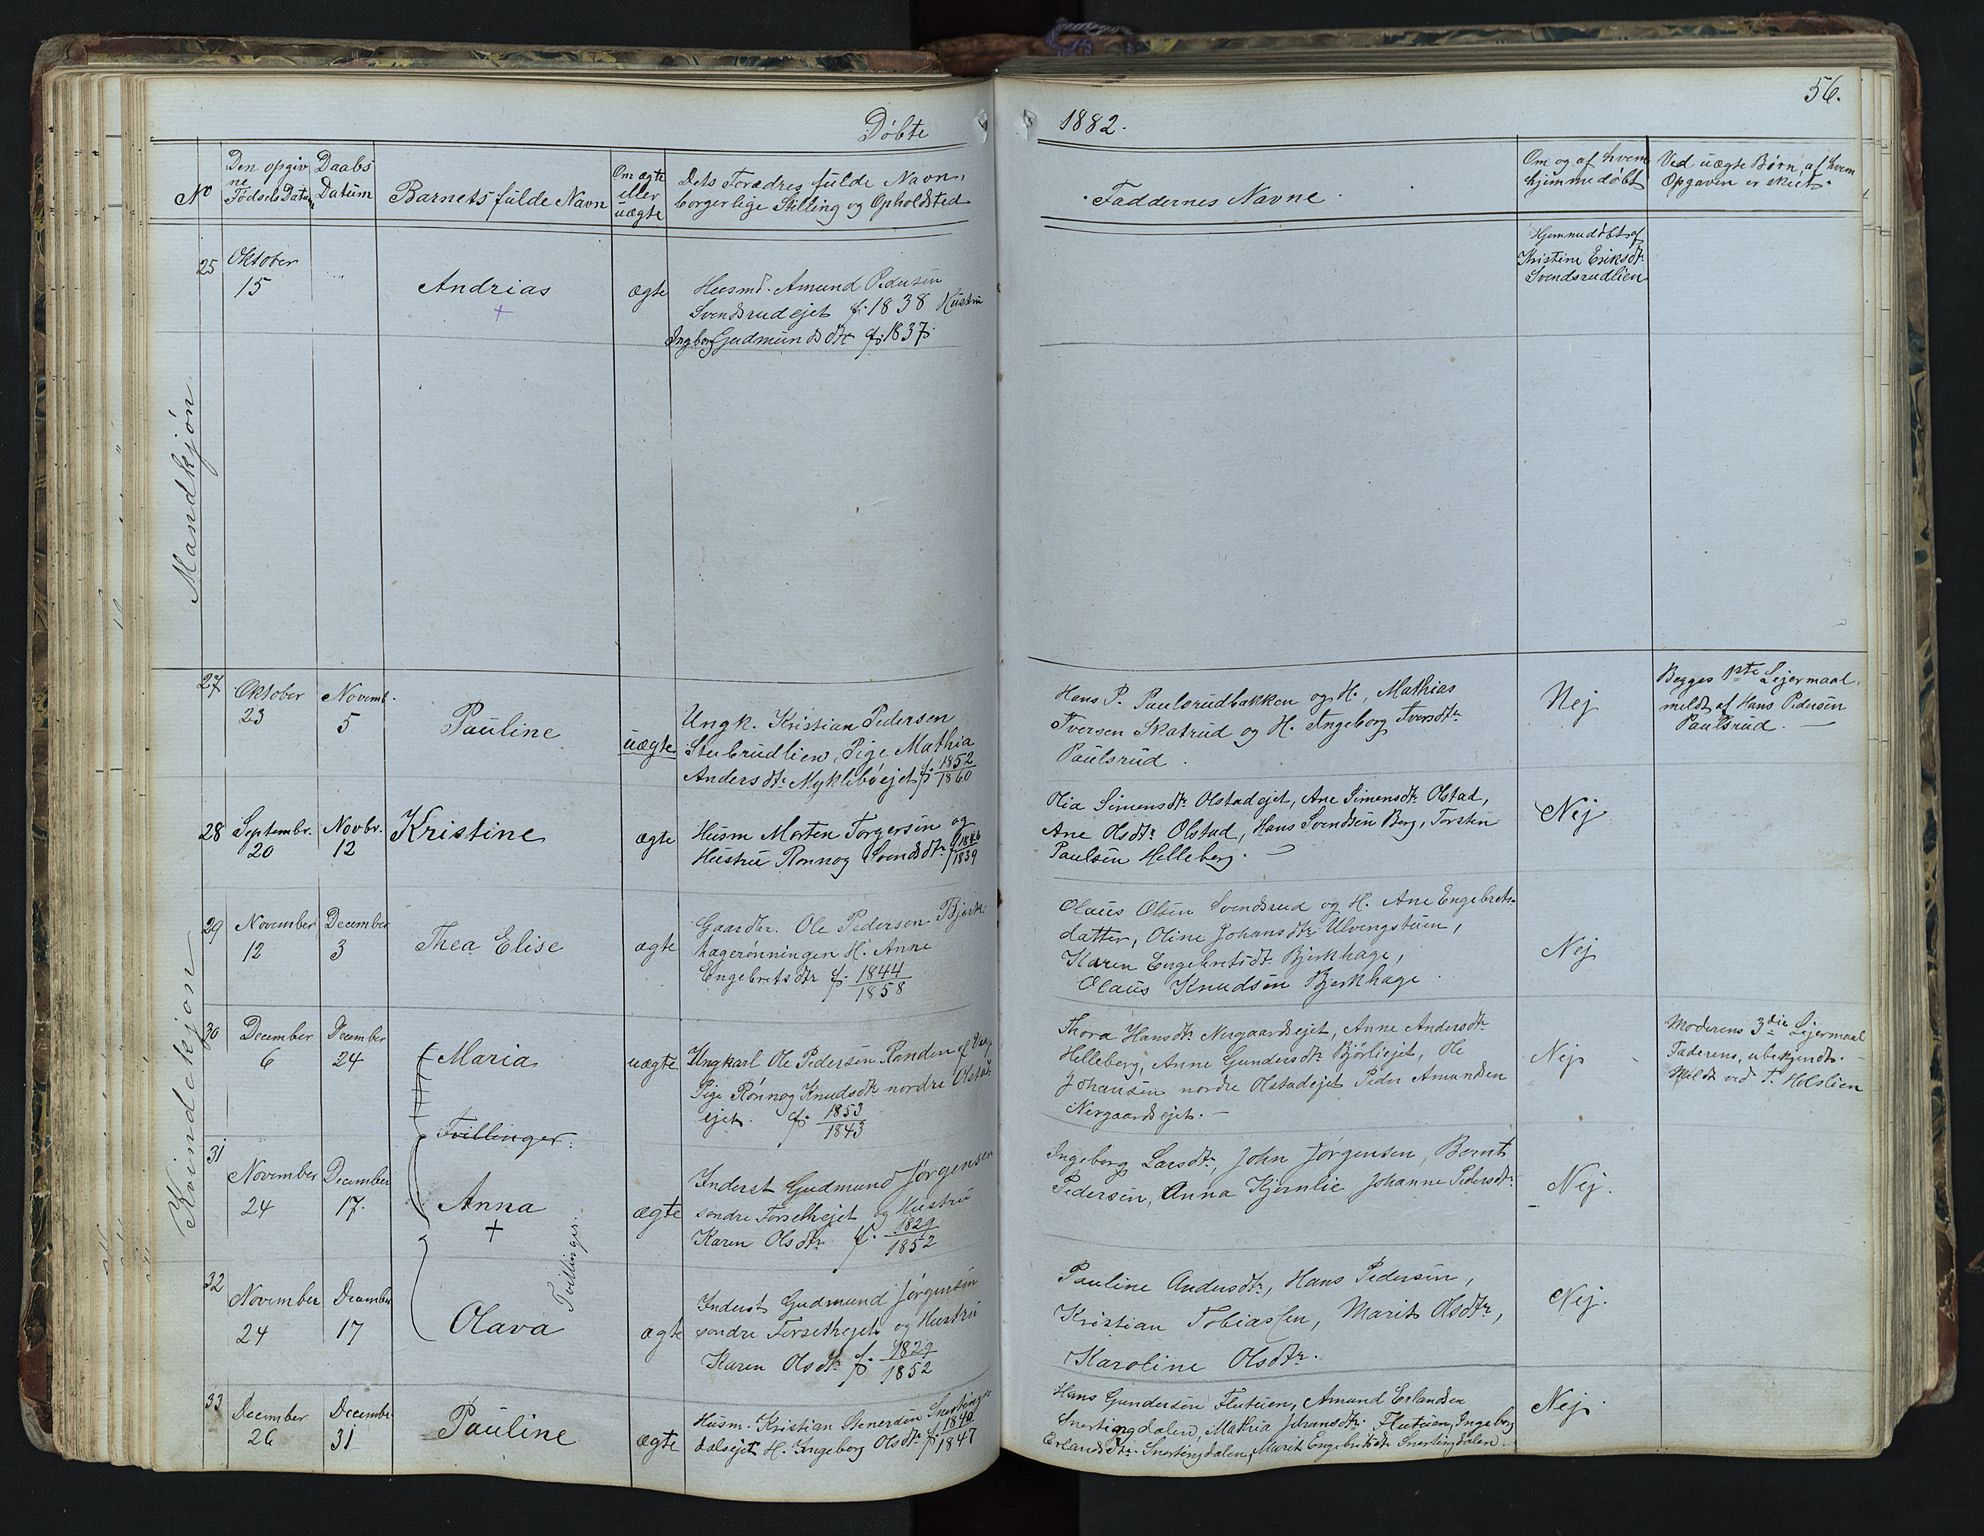 56.
Døbte 1882.
No
Den opgiv
ne
Fødsels Datum
Daabs
Datum
Barnets fulde Navn
Om ægte
eller
uægte
Dets Forædres fulde Navn,
borgerlige Stilling og Opholdsted
Faddernes Navne
Om og af hvem
hjemmedøbt
Ved uægte Børn, af hvem
Opgaven er skeet.
Mandkjøn
25
Oktober
15
Andrias
+
ægte
Husmd. Amund Pedersen
Svendsrudejet f. 1838 Hustru
Ingborg Gudmundsdtr f. 1837.
Hjemmedøbt af
Kristine Eriksdtr
Svendsrudlien
Kvindekjøn
27
Oktober
23
Novemb.
5
Pauline
uægte
Ungk. Kristian Pedersen
Stubrudlien, Pige Mathia
Andersdtr Myklebøejet f. 1852
1860
Hans P. Paulsrudbakken og H. Mathias
Iversen Skatrud og H. Ingeborg Iversdtr
Paulsrud.
Nej
Begges 1ste Lejermaal,
meldt af Hans Pedersen
Paulsrud.
28
Septembr.
20
Novbr.
12
Kristine
ægte
Husm Morten Torgersen og
Hustru Rønnog Svendsdtr. f. 1846
1839
Olia Simensdtr Olstadejet, Ane Simensdtr Olstad,
Ane Olsdtr Olstad, Hans Svendsen Berg, Torsten
Paulsen Helleberg.
Nej
29
November
12
December
3
Thea Elise
ægte
Gaardbr. Ole Pedersen Bjerk-
hagerønningen H. Anne
Engebretsdtr f. 1844
1858
Olaus Olsen Svendsrud og H. Ane Engebrets-
datter, Oline Johansdtr Ulvingstuen,
Karen Engebretsdtr Bjerkhage,
Olaus Knudsen Bjerkhage.
Nej
30
December
6
December
24
Maria
uægte
Ungkarl Ole Pedersen Randen af
Pige Rønnog Knudsdtr nordre Olstad
ejet. f. 1853
1843
Thora Hansdtr Nergaardsejet, Anne Andersdtr
Helleberg, Anne Gundersdtr Bjørliejet, Ole
Johansen nordre Olstadejet Peder Amundsen
Nergaardsejet.
Nej
Moderens 3die Lejermaal
Faderens, ubekjendt.
Meldt ved T. Holslien
Tvillinger.
31
November
24
December
17.
Anna
+
ægte
Inderst Gudmund Jørgensen
søndre Forsethejet og Hustru
Karen Olsdtr f. 1829
1852
Ingeborg Larsdtr, John Jørgensen, Bernt
Pedersen, Anna Kjernlie Johanne Pedersdtr.
Nej.
Tvillinger.
32
November
24
December
17
Olava
ægte
Inderst Gudmund Jørgensen
søndre Forsethejet og Hustru
Karen Olsdtr f. 1829
1852
Pauline Andersdtr, Hans Pedersen,
Kristian Tobiassen, Marit Olsdtr,
Karoline Olsdtr.
Nej.
33
December
26
December
31
Pauline
ægte
Husm. Kristian Stenersen Snerting
dalsejet H. Ingeborg Olsdtr f. 1840
1847
Hans Gundersen Flutuen, Amund Erlandsen
Snertingdalen, Mathia Johansdtr. Flutuen, Ingeborg
Erlandsdtr. Snertingdalen, Marit Engebretsdtr Snertingdalen.
Nej